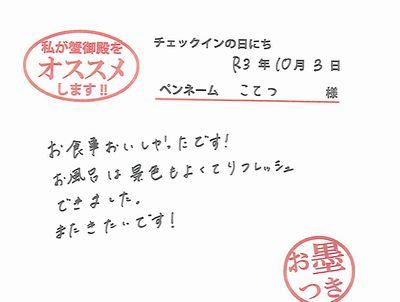 私が蟹御殿を
オススメ
します!!
チェックインの日にち
R3年10月3日
ペンネーム こてつ 様
お食事おいしかったです!
お風呂は景色もよくてリフレッシュ
できました。
またきたいです!
お墨
つき